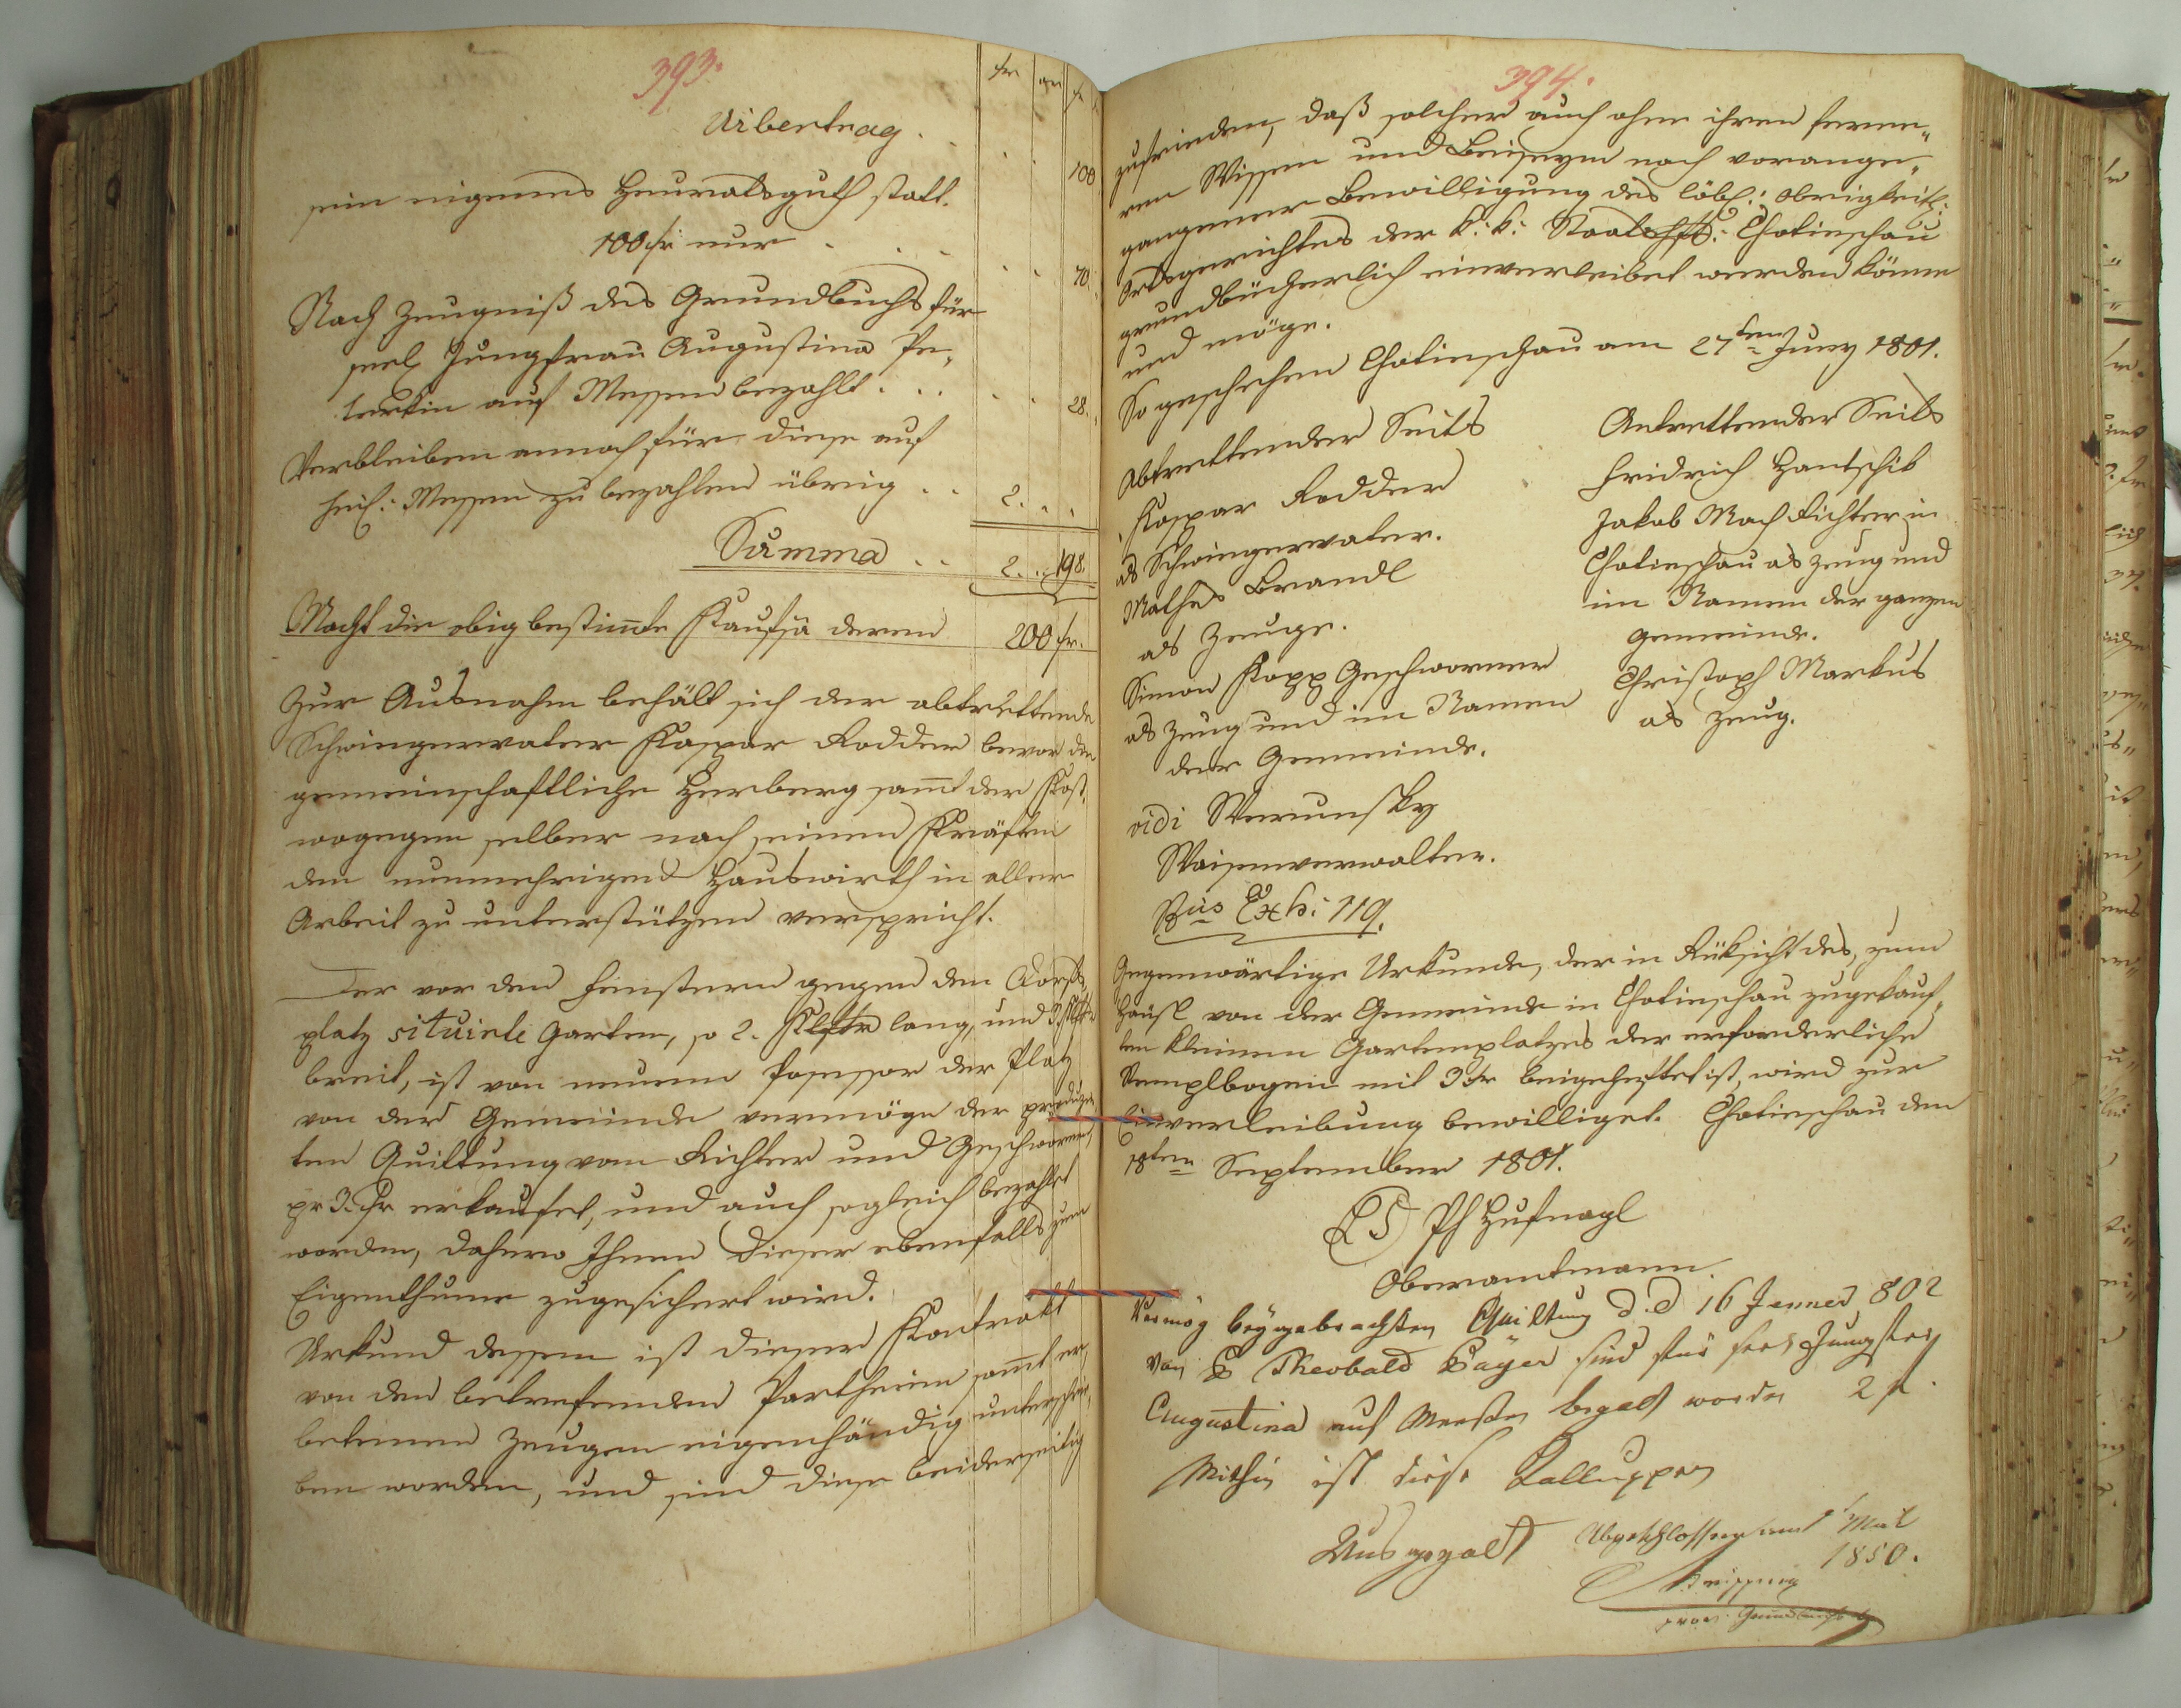 393.
fr
Uibertrag . . . 100
sein eigenes Heuratsguth statt
100 fr nur . . . 70.
Nach Zeugniß des Grundbuchs für
seel. Jungfrau Augustina Pe¬
terkin auf Messen bezahlt . . . 28.
Verbleiben annoch für diese auf
heil: Messen zu bezahlen übrig . . 2. . .
Summa . . 2. . . 198.
Macht die obig bestim̄te Kaufsa deren 200 fr.
Zur Ausnahm behält sich der abtrettende
Schwiegervater Kaspar Rodder bevor die
gemeinschaftliche Herberg sam̄t der Kost,
wogegen selber nach seinen Kräften
den nunmehrigen Hauswirth in aller
Arbeit zu unterstützen verspricht.
Der vor den Fenstern gegen den Dorfs¬
platz situirte Garten, so 2. Klftr lang, und 3. Klftr
breit, ist von neuem Possessor der Platz
von der Gemeinde vermöge der produzir¬
ten Quittung vom Richter und Geschwornen
pr 3 fr erkaufet, und auch sogleich bezahlt
worden, dahero Ihnen dieser ebenfalls zum
Eigenthume zugesichert wird.
Urkund dessen ist dieser Kontrakt
von den betrefenden Partheien sam̄t er¬
betenen Zeugen eigenhändig unterschrie¬
ben worden, und sind diese beiderseitig
394.
zufrieden, daß solcher auch ohne ihren ferne¬
ren Wissen und Beiseyn nach vorange¬
gangener Bewilligung des löbl: obrigkeitl:
Ortsgerichtes der k: k: Staatshft: Chotieschau
grundbücherlich einverleibet werden könne
und möge.
So geschehen Chotieschau am 27ten Juny 1801.
Abtrettender Seits
Kaspar Rodder
als Schwiegervater.
Mathes Brandl
als Zeuge.
Simon Kopp Geschworner
als Zeug und im Namen
der Gemeinde.
Antrettender Seits
Fridrich Hantschik
Jakob Mach Richter in
Chotieschau als Zeug und
im Namen der ganzen
Gemeinde.
Christoph Markus
als Zeug.
vidi Werunsky
Waisenverwalter.
Nus Exh: 119.
Gegenwärtige Urkunde, der in Rüksicht des, zum
Häusl von der Gemeinde in Chotieschau zugekauf¬
ten kleinen Gartenplatzes der erforderliche
Stemplbogen mit 3 kr beigeheftet ist, wird zur
Einverleibung bewilliget. Chotieschau den
18ten September 1801.
LS Ph Hufnagl
Oberamtmann.
Vermög beygebrachten Quittung d.d 16 Jenner 802
von P Theobald Bayer sind für seel Jungfer
Augustina auf Messen bezalt worden 2 f.
Mithin ist diese Kalluppen
Ausgezalt
Abgeschlossen am 1t Mai
1850.
prov. Grundbuchs